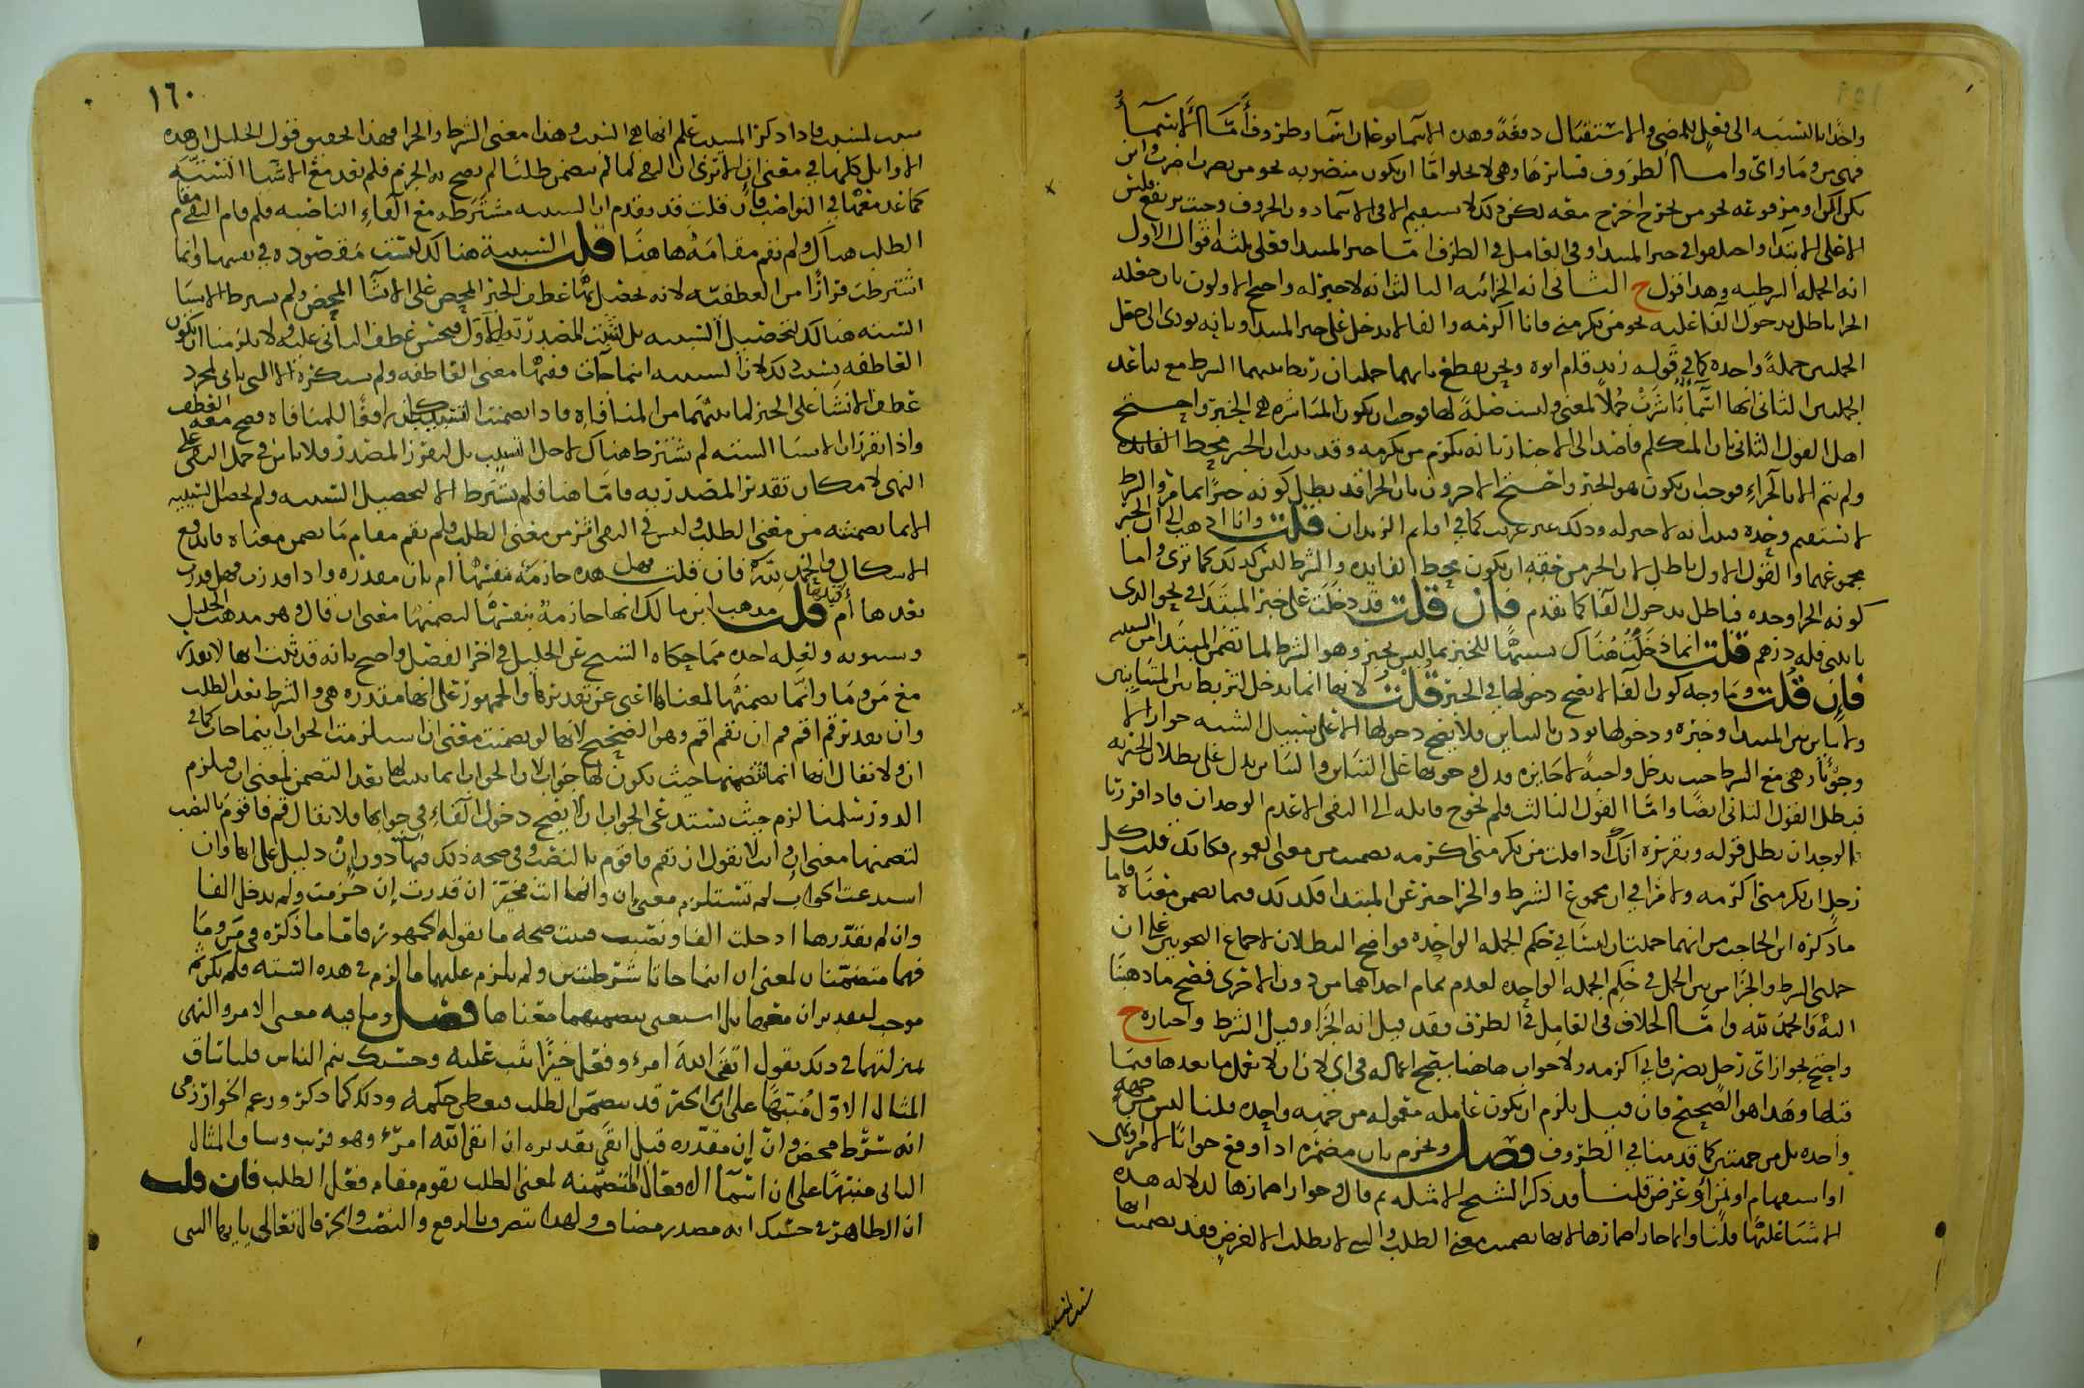 واحدا بالنسبه الى فعل للمضى والاستقبال دفعة وهده الاسما نوعان اسما وطروف أمّا الاسمأ
فهى من وما واى واما الطروف فسايرها وهى لا تخلوا امّا ان يكون منصوبه نحو من تصرب اضرب واين
تكن اكن او مرفوعه نحو من يخرج اخرج معه لكن دلك لا يستقيم الا فى الاسما دون الحروف وحيت يرتفع فليس
الا على الابتدا واختلفوا فى خبر المبتدا وفى العامل فى الطرف امّا خبر المبتدا فعلى ثلثه اقوال الاول
انه الجمله الشرطيه وهدا قول ح الثانى انه الجزائيه الثالث انه لا خبر له واحتج الاولون بان جعله
الجزا باطل بدخول الفا عليه نحو من يكرمنى فانا اكرمه والفا لا يدخل على خبر المبتدا وبانه يودى الى جعل
الجملتين جملةً واحده كما فى قوله زيد قام ابوه ونحن نقطع بانهما جملتان
الجملتين الثانى انها اسمأ باشرت جملاً لمعنى وليست صلةً لها فوجب ان يكون المباشره هى الخبر واحتج
اهل القول الثانى بان المتكلم قاصد الى الاخبار بانه يكرم من يكرمه وقد بان الخبر محط الفايده
ولم يتم الا بالجزاءِ فوجب ان يكون هو الخبر واحتج الاخرون بان الجزا قد بطل كونه خبرًا بما مر والشرط
لا تستقيم وحده فبان انه لا خبر له ودلك غير غريب كما فى اقايم الزيدان قلت وانا ادهب الى ان الخبر
مجموعهما والقول الاول باطل لان الخبر من حقه ان يكون محط الفايده والشرط ليس كدلك كما ترى واما
كونه الجزا وحده فباطل بدخول الفا كما تقدم فان قلت قد دخلت على خبر المبتدا فى نحو الدى
ياتينى فله درهم قلت انما دخلت هناك تشبيهًا للخبر بما ليس بخبر وهو الشرط لما تضمن المبتدا من التشبيه
فإن قلت وما وجه كون الفا لا يصح دخولها فى الخبر قلت لانها انما يدخل لتربط بين المتباينين
ولا تباين بين المبتدا وخبره ودخولها يودن بالتباين فلا يصح دخولها الا على سبيل الشبه جوازا لا
وجوبًا وهى مع الشرط حيث يدخل واجبةً لا جايزه فدل وجوبها على التباين والتباين يدل على بطلان الخبريه
فبطل القول الثانى ايضًا وامّا القول الثالث فلم نحوج قايله الى النفى الا عدم الوجدان فادا قررنا
الوجدان بطل قوله وتقريره انك ادا قلت من يكرمنى اكرمه تضمنت من معنى العموم فكانك قلت كل
رجل ان يكرمنى اكرمه ولا مرا فى ان مجموع الشرط والجزا خبر عن المبتدا فكدلك فيما تضمن معناه فاما
ما ذكره ابن الحاجب من انهما جملتان ليستا فى حكم الجمله الواحده فواضح البطلان لاجماع النحويين على ان
جملتى الشرط والجزا من بين الجمل فى حكم الجمله الواحده لعدم تمام احداهما من دون الاخرى فصح ما دهبنا
اليه والحمد لله وامّا الخلاف فى العامل فى الطرف فقد قيل انه الجزا وقيل الشرط واختاره ح
واحتج بجواز اىّ رجل يضرب فانى اكرمه ولا جواب هاهنا يصح اعماله فى اى لان ان لا تعمل ما بعدها فيما
قبلها وهدا هو الصحيح فان قيل يلزم ان يكون عامله معموله من جهه واحده قلنا ليس من جهه
واحده بل من جهتين كما قدمنا فى الطروف فصل ويجزم بان مضمره ادا وقع جوابًا لامر او نهى
او استفهام او تمنٍ او عرض قلنا قد ذكر الشيخ الامثله ثم قال وجواز اضمارها لدلاله هده
الاشيا عليها قلنا وانما جاز اضمارها لانها تضمنت معنى الطلب والشى لا يطلب الا لغرضٍ فقد تضمنت انها
١٦٠
سبب لمسبب فادا دكر المسبب علم انها هى السبب وهدا معنى الشرط والجزا فهدا تحقيق قول الخليل ان هده
الاوايل كلها فى معنى ان الا ترى ان النفى لما لم يتضمن طلبًا لم يصح به الجزم فلم يعد مع الاشيا الستّه
كما عد معها فى النواصب فإن قلت قد تقدم ان السببيه مشترطه مع الفاءِ الناصبه فلم قام النفى مقام
الطلب هناك ولم يقم مقامه هاهنا قلت السببيه هنالك ليست مقصوده فى نفسها وانما
اشترطت فرارًا من العطفيّه لانه يحصل بها عطف الخبر المحض على الانشا المحض ولم يشرط الاشيا
الستة هنالك لتحصيل السببيه بل لثبت المصدر بتوليد الاول فيحسن عطف الثانى عليه ولا يلزمنا ان يكون
العاطفه
عطف الانشا على الخبر لما بينهما من المنافاه فادا تضمنت التسبيب كان رافعًا للمنافاه وصح معه العطف
واذا تقرر ان الاشيا الستة لم تشترط هناك لاجل التسبيب بل لتقرر المصدر فلا باس فى حمل النفى على
النهى لامكان تقدير المصدر به فامّا هنا فلم تشترط الا لتحصيل التسبيب ولم يحصل التسبيب
الا بما تضمنته من معنى الطلب وليس فى النفى اثر من معنى الطلب فلم يقم مقام ما تضمن معناه فاندفع
الاشكال والحمد لله فإن قلت فهل هده جازمه بنفسها أم بان مقدره واداه قدرت فهل قدرت
بعدها أم قبلها قلت مدهب ابن مالك انها جازمة بنفسها لتضمنها معنى ان قال وهو مدهب الخليل
وسيبويه ولعله اخده مما حكاه الشيخ عن الخليل فى اخر الفصل واحتج بانه قد ثبت انها لا تقدر
مع من وما وانّما تضمنها لمعناها اغنى عن تقديرها والجمهور على انها مقدره هى والشرط بعد الطلب
وان تقدير قم اقم قم ان تقم اقم وهو الصحيح لانها لو تضمنت معنى ان استلزمت الجواب اينما جات كما فى
ان ولا يقال انها انما تتضمنها حيث يكون لها جواب لان الجواب انما يثبت لها بعد التضمن لمعنى ان فيلزم
الدور سلمنا لزم حيث تستدعى الجواب ان لا يصح دخول الفاءِ فى جوابها ولا يقال قم فاقوم بالنصب
لتضمنها معنى ان وانت لا تقول ان تقم فاقوم بالنصب وفى صحه ذلك فيها دون ان دليل على انها وان
استدعت الجواب لم تستلزم معنى ان وانها انت مخيّر ان قدرت إن جزمت ولم يدخل الفا
وان لم تقدّرها ادخلت الفا ونصبت فثبت صحه ما يقوله الجمهور فامّا ما ذكره فى من وما
فهما متضمّنان لمعنى ان اينما جاتا شرطيتين ولم يلزم عليهما ما لزم فى هده الستّه فلم يكن ثم
موجب لتقدير ان معهما بل استغنى بتضمنهما معناها فصل وما فيه معنى الامر والنهى
بمنزلتهما فى دلك تقول اتقى الله امرءٌ وفعل خيرًا يثب عليه وحسبك ينم الناس قلنا ساق
المثال الاوّل منبهًا على ان الخبر قد يتضمّن الطلب فيعطى حكمه ودلك كما دكر وزعم الخوارزمى
انه شرط محض وانّ إن مقدره قبل اتقى تقديره ان اتقى الله امرءٌ وهو قريب وساق المثال
الثانى منبهًا على ان اسمآ الافعال المتضمّنه لمعنى الطلب يقوم مقام فعل الطلب فان قلت
ان الطاهر فى حسبك انه مصدر مضاف ولهدا يتصرف بالرفع والنصب والجر قال تعالى يا ايها النبى